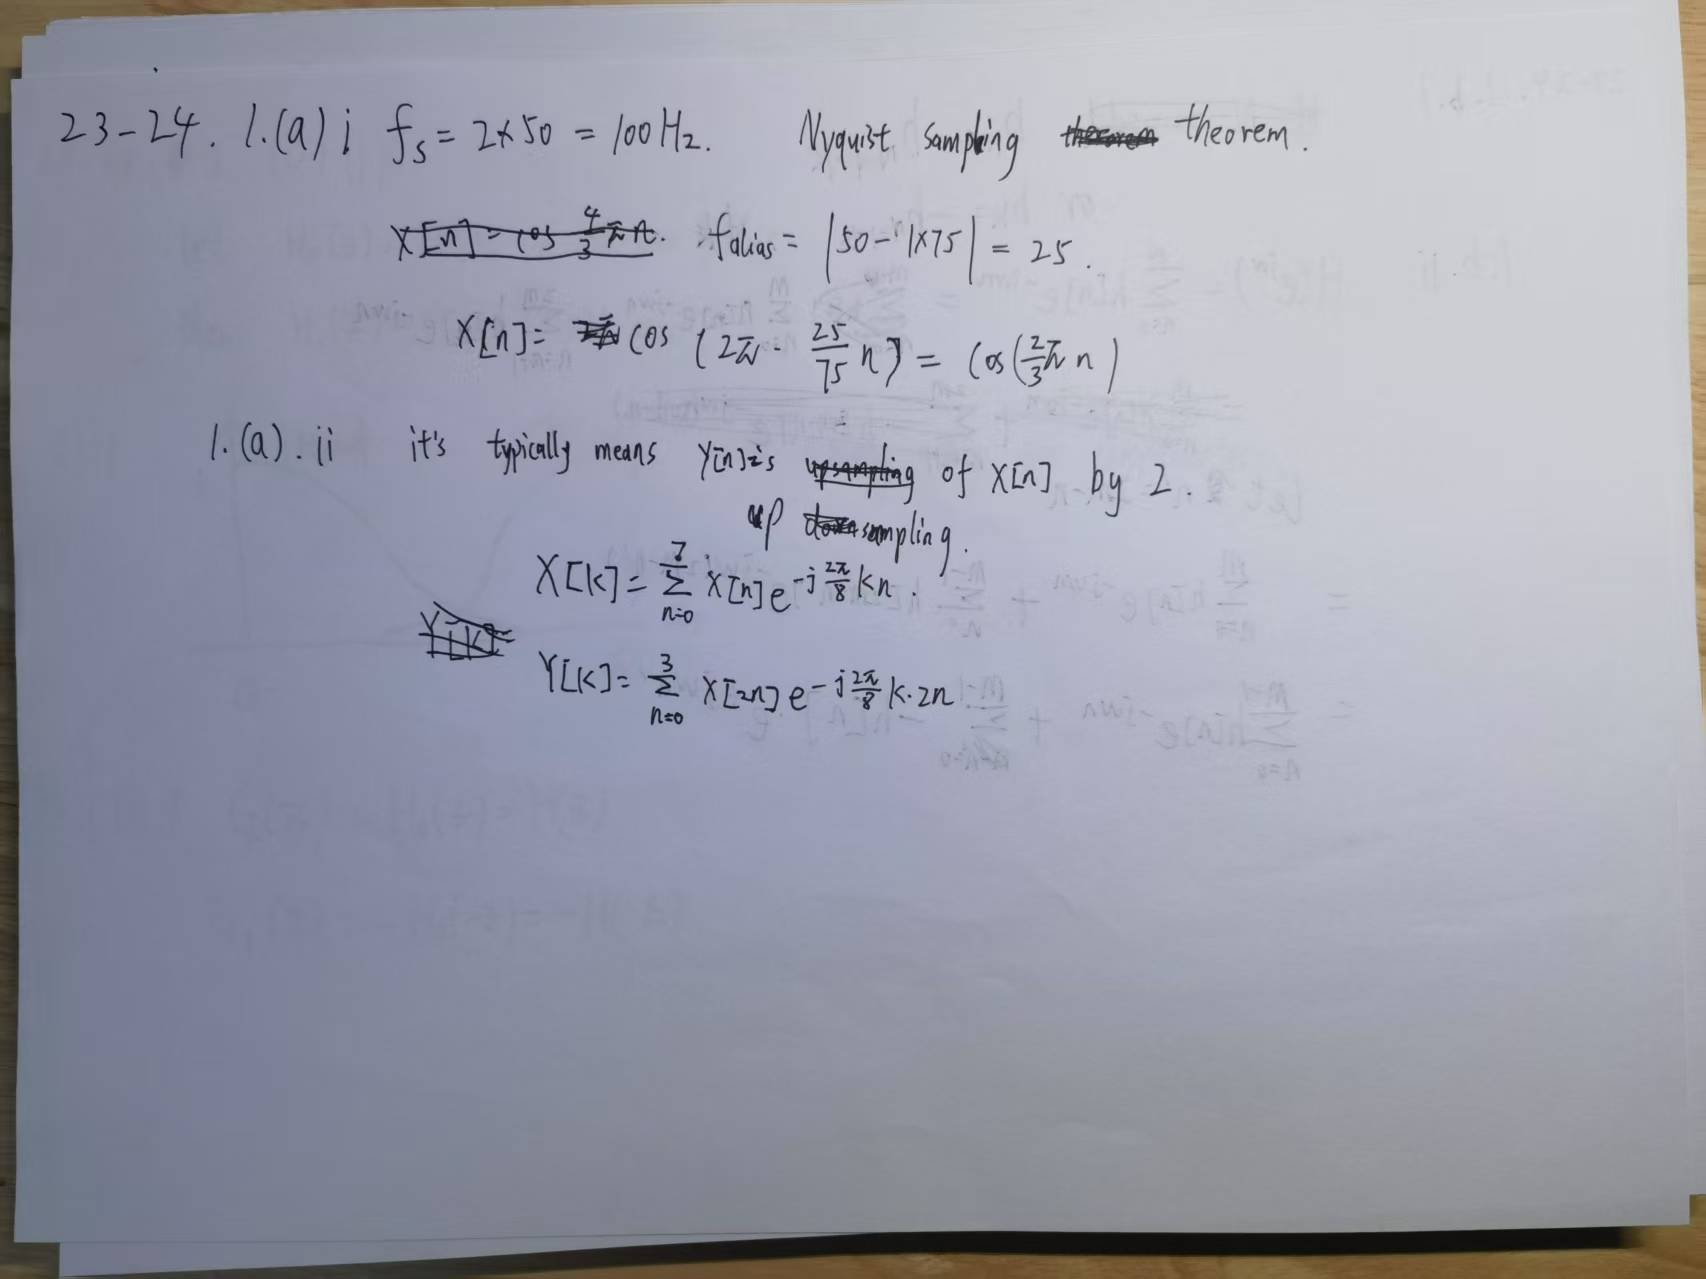 23-24. 1.(a) i fs = 2×50 = 100Hz. Nyquist sampling theorem.
X[n] = cos 4/3 πn. falias = |50-1×75| = 25.
X[n] = cos (2π · 25/75 n) = cos(2/3 π n)
1.(a). ii it's typically means Y[n] is upsampling of X[n] by 2.
up down sampling.
X[k] = Σ_{n=0}^{7} X[n] e^{-j 2π/8 kn}.
Y[k]
Y[k] = Σ_{n=0}^{3} X[2n] e^{-j 2π/8 k·2n}